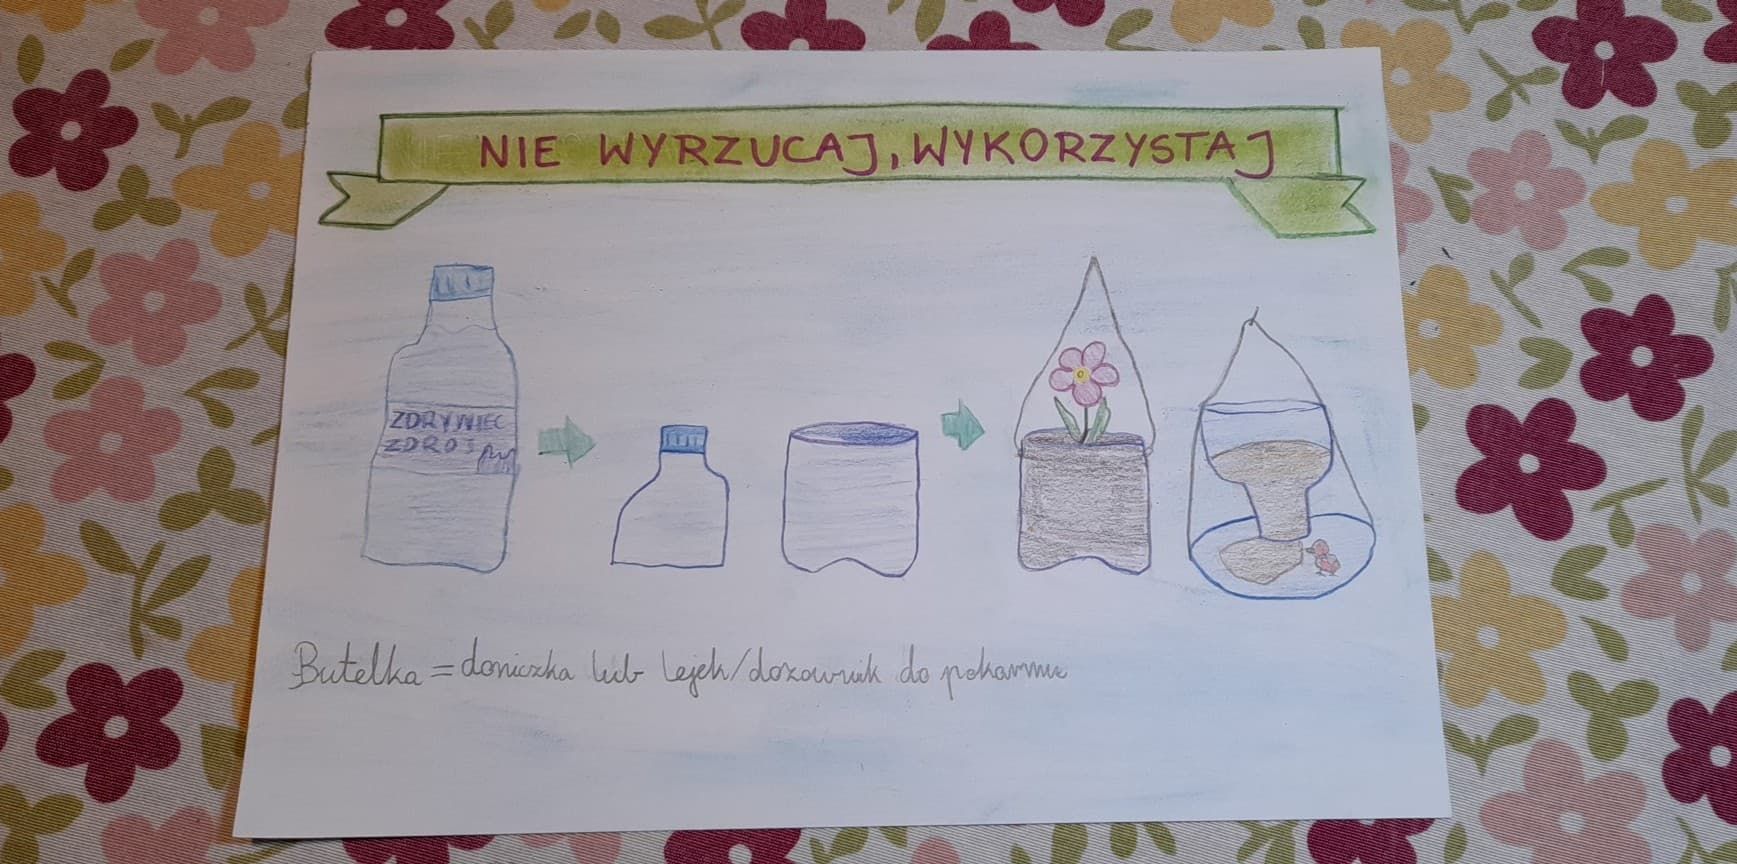 NIE WYRZUCAJ, WYKORZYSTAJ
ZDRYWIEC
ZDRÓJ
Butelka = doniczka lub lejek/dozownik do pokarmu